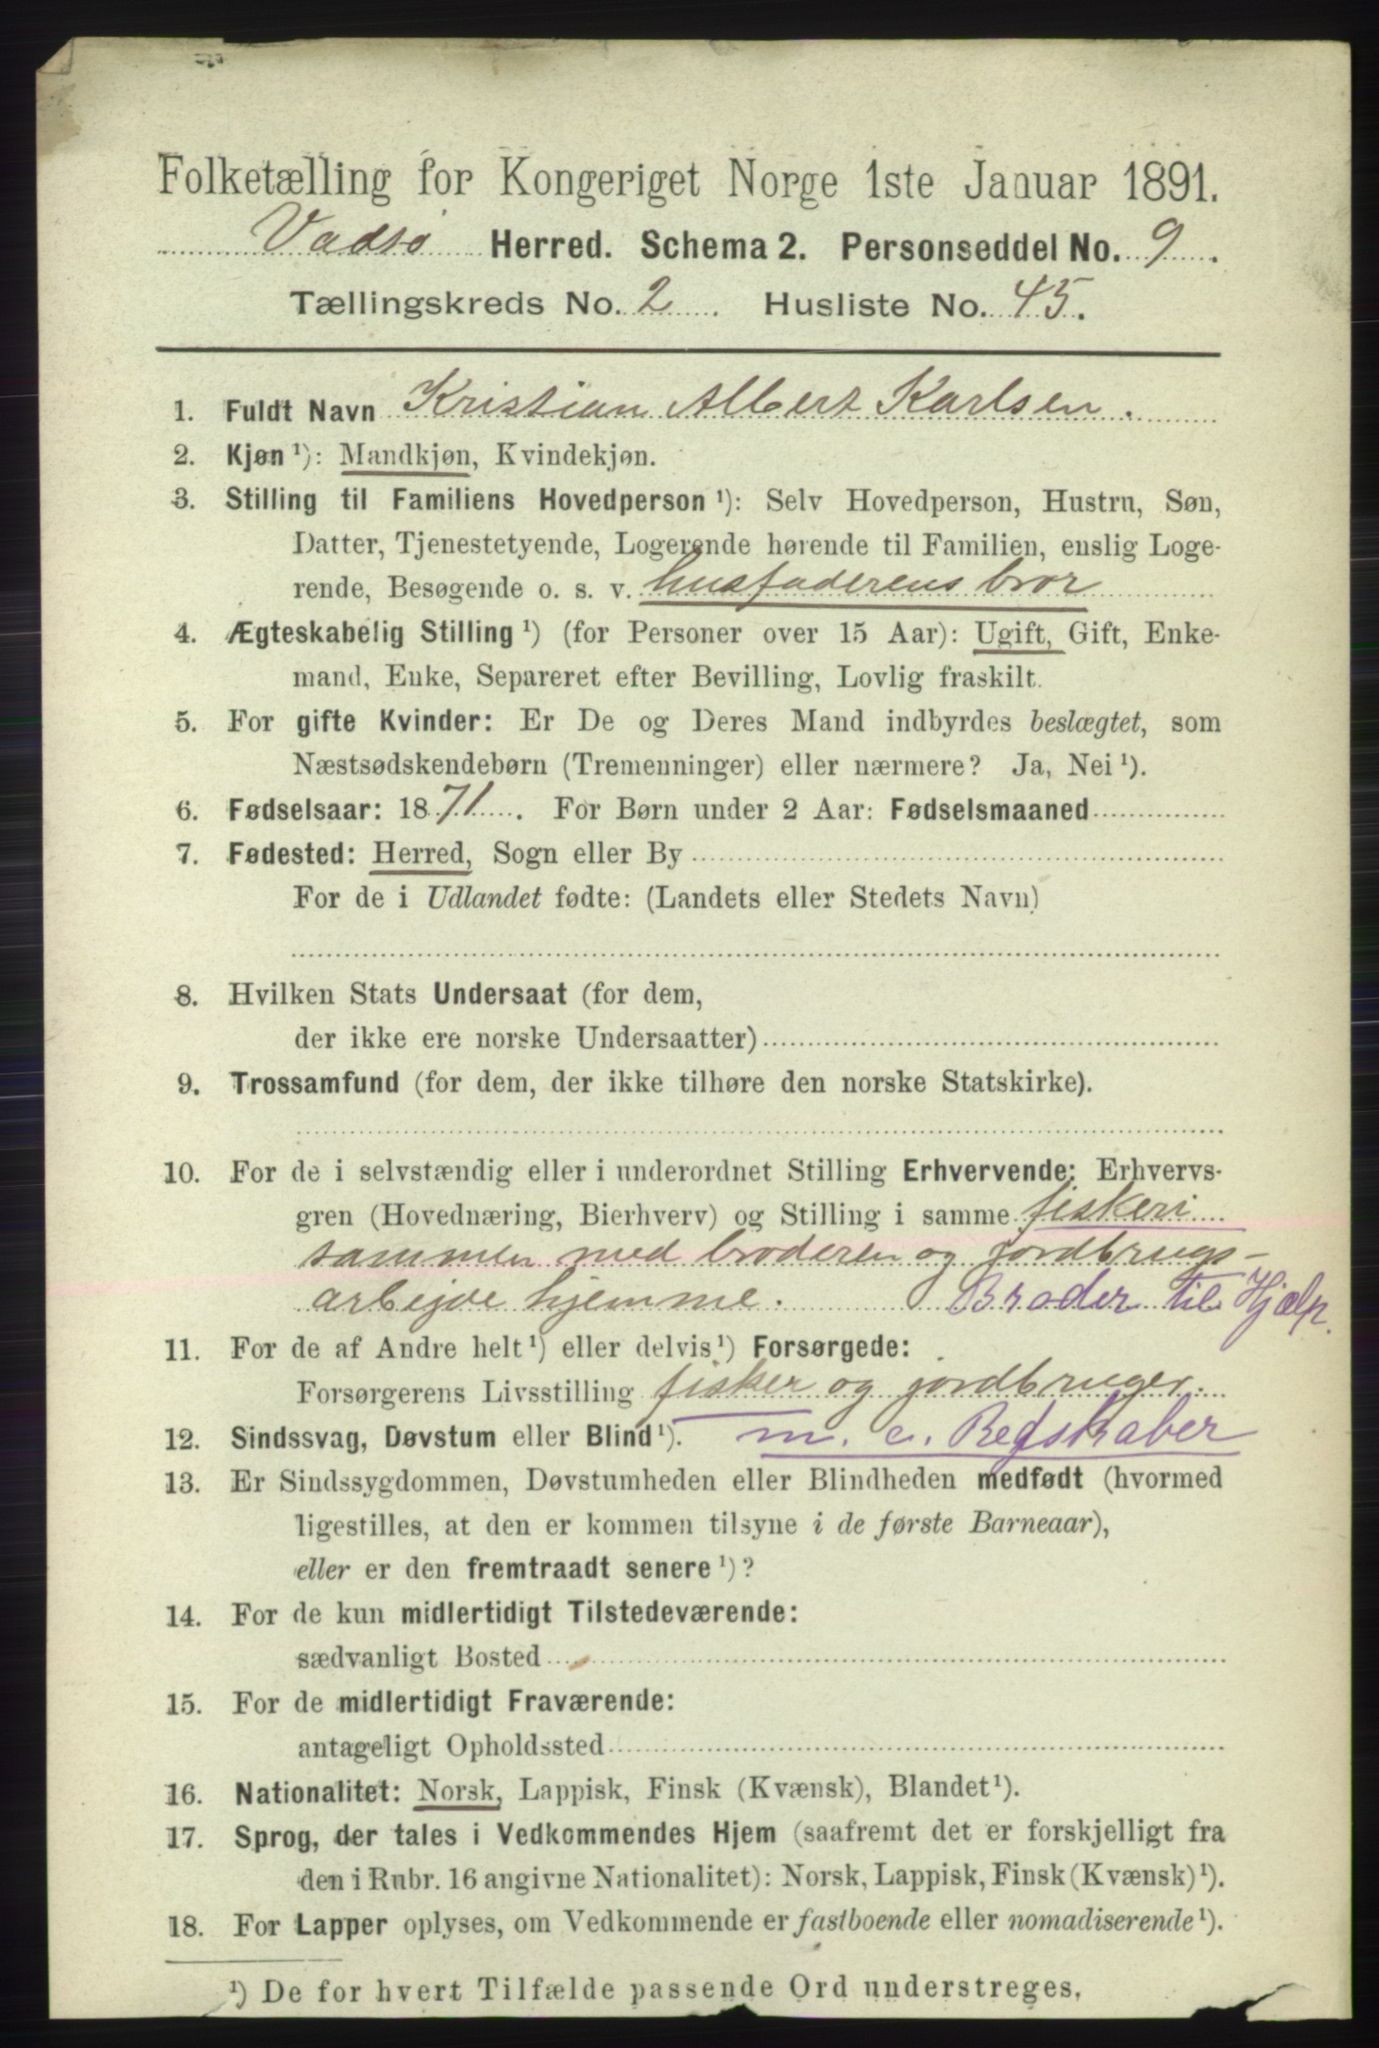 Folketælling for Kongeriget Norge 1ste Januar 1891.
Vadsø Herred. Schema 2. Personseddel No. 9.
Tællingskreds No. 2. Husliste No. 45.
1. Fuldt Navn Kristian Albert Karlsen.
2. Kjøn ¹): Mandkjøn, Kvindekjøn.
3. Stilling til Familiens Hovedperson ¹): Selv Hovedperson, Hustru, Søn,
Datter, Tjenestetyende, Logerende hørende til Familien, enslig Loge-
rende, Besøgende o. s. v. husfaderens bror
4. Ægteskabelig Stilling ¹) (for Personer over 15 Aar): Ugift, Gift, Enke-
mand, Enke, Separeret efter Bevilling, Lovlig fraskilt.
5. For gifte Kvinder: Er De og Deres Mand indbyrdes beslægtet, som
Næstsødskendebørn (Tremenninger) eller nærmere? Ja, Nei ¹).
6. Fødselsaar: 1871. For Børn under 2 Aar: Fødselsmaaned
7. Fødested: Herred, Sogn eller By
For de i Udlandet fødte: (Landets eller Stedets Navn)
8. Hvilken Stats Undersaat (for dem,
der ikke ere norske Undersaatter)
9. Trossamfund (for dem, der ikke tilhøre den norske Statskirke).
10. For de i selvstændig eller i underordnet Stilling Erhvervende: Erhvervs-
gren (Hovednæring, Bierhverv) og Stilling i samme fiskeri
sammen med broderen og jordbrugs-
arbejde hjemme. Broder til Hjælp.
11. For de af Andre helt ¹) eller delvis ¹) Forsørgede:
Forsørgerens Livsstilling fisker og jordbruger.
12. Sindssvag, Døvstum eller Blind ¹). m. e. Redskaber
13. Er Sindssygdommen, Døvstumheden eller Blindheden medfødt (hvormed
ligestilles, at den er kommen tilsyne i de første Barneaar),
eller er den fremtraadt senere ¹)?
14. For de kun midlertidigt Tilstedeværende:
sædvanligt Bosted
15. For de midlertidigt Fraværende:
antageligt Opholdssted
16. Nationalitet: Norsk, Lappisk, Finsk (Kvænsk), Blandet ¹).
17. Sprog, der tales i Vedkommendes Hjem (saafremt det er forskjelligt fra
den i Rubr. 16 angivne Nationalitet): Norsk, Lappisk, Finsk (Kvænsk) ¹).
18. For Lapper oplyses, om Vedkommende er fastboende eller nomadiserende ¹).
¹) De for hvert Tilfælde passende Ord understreges.